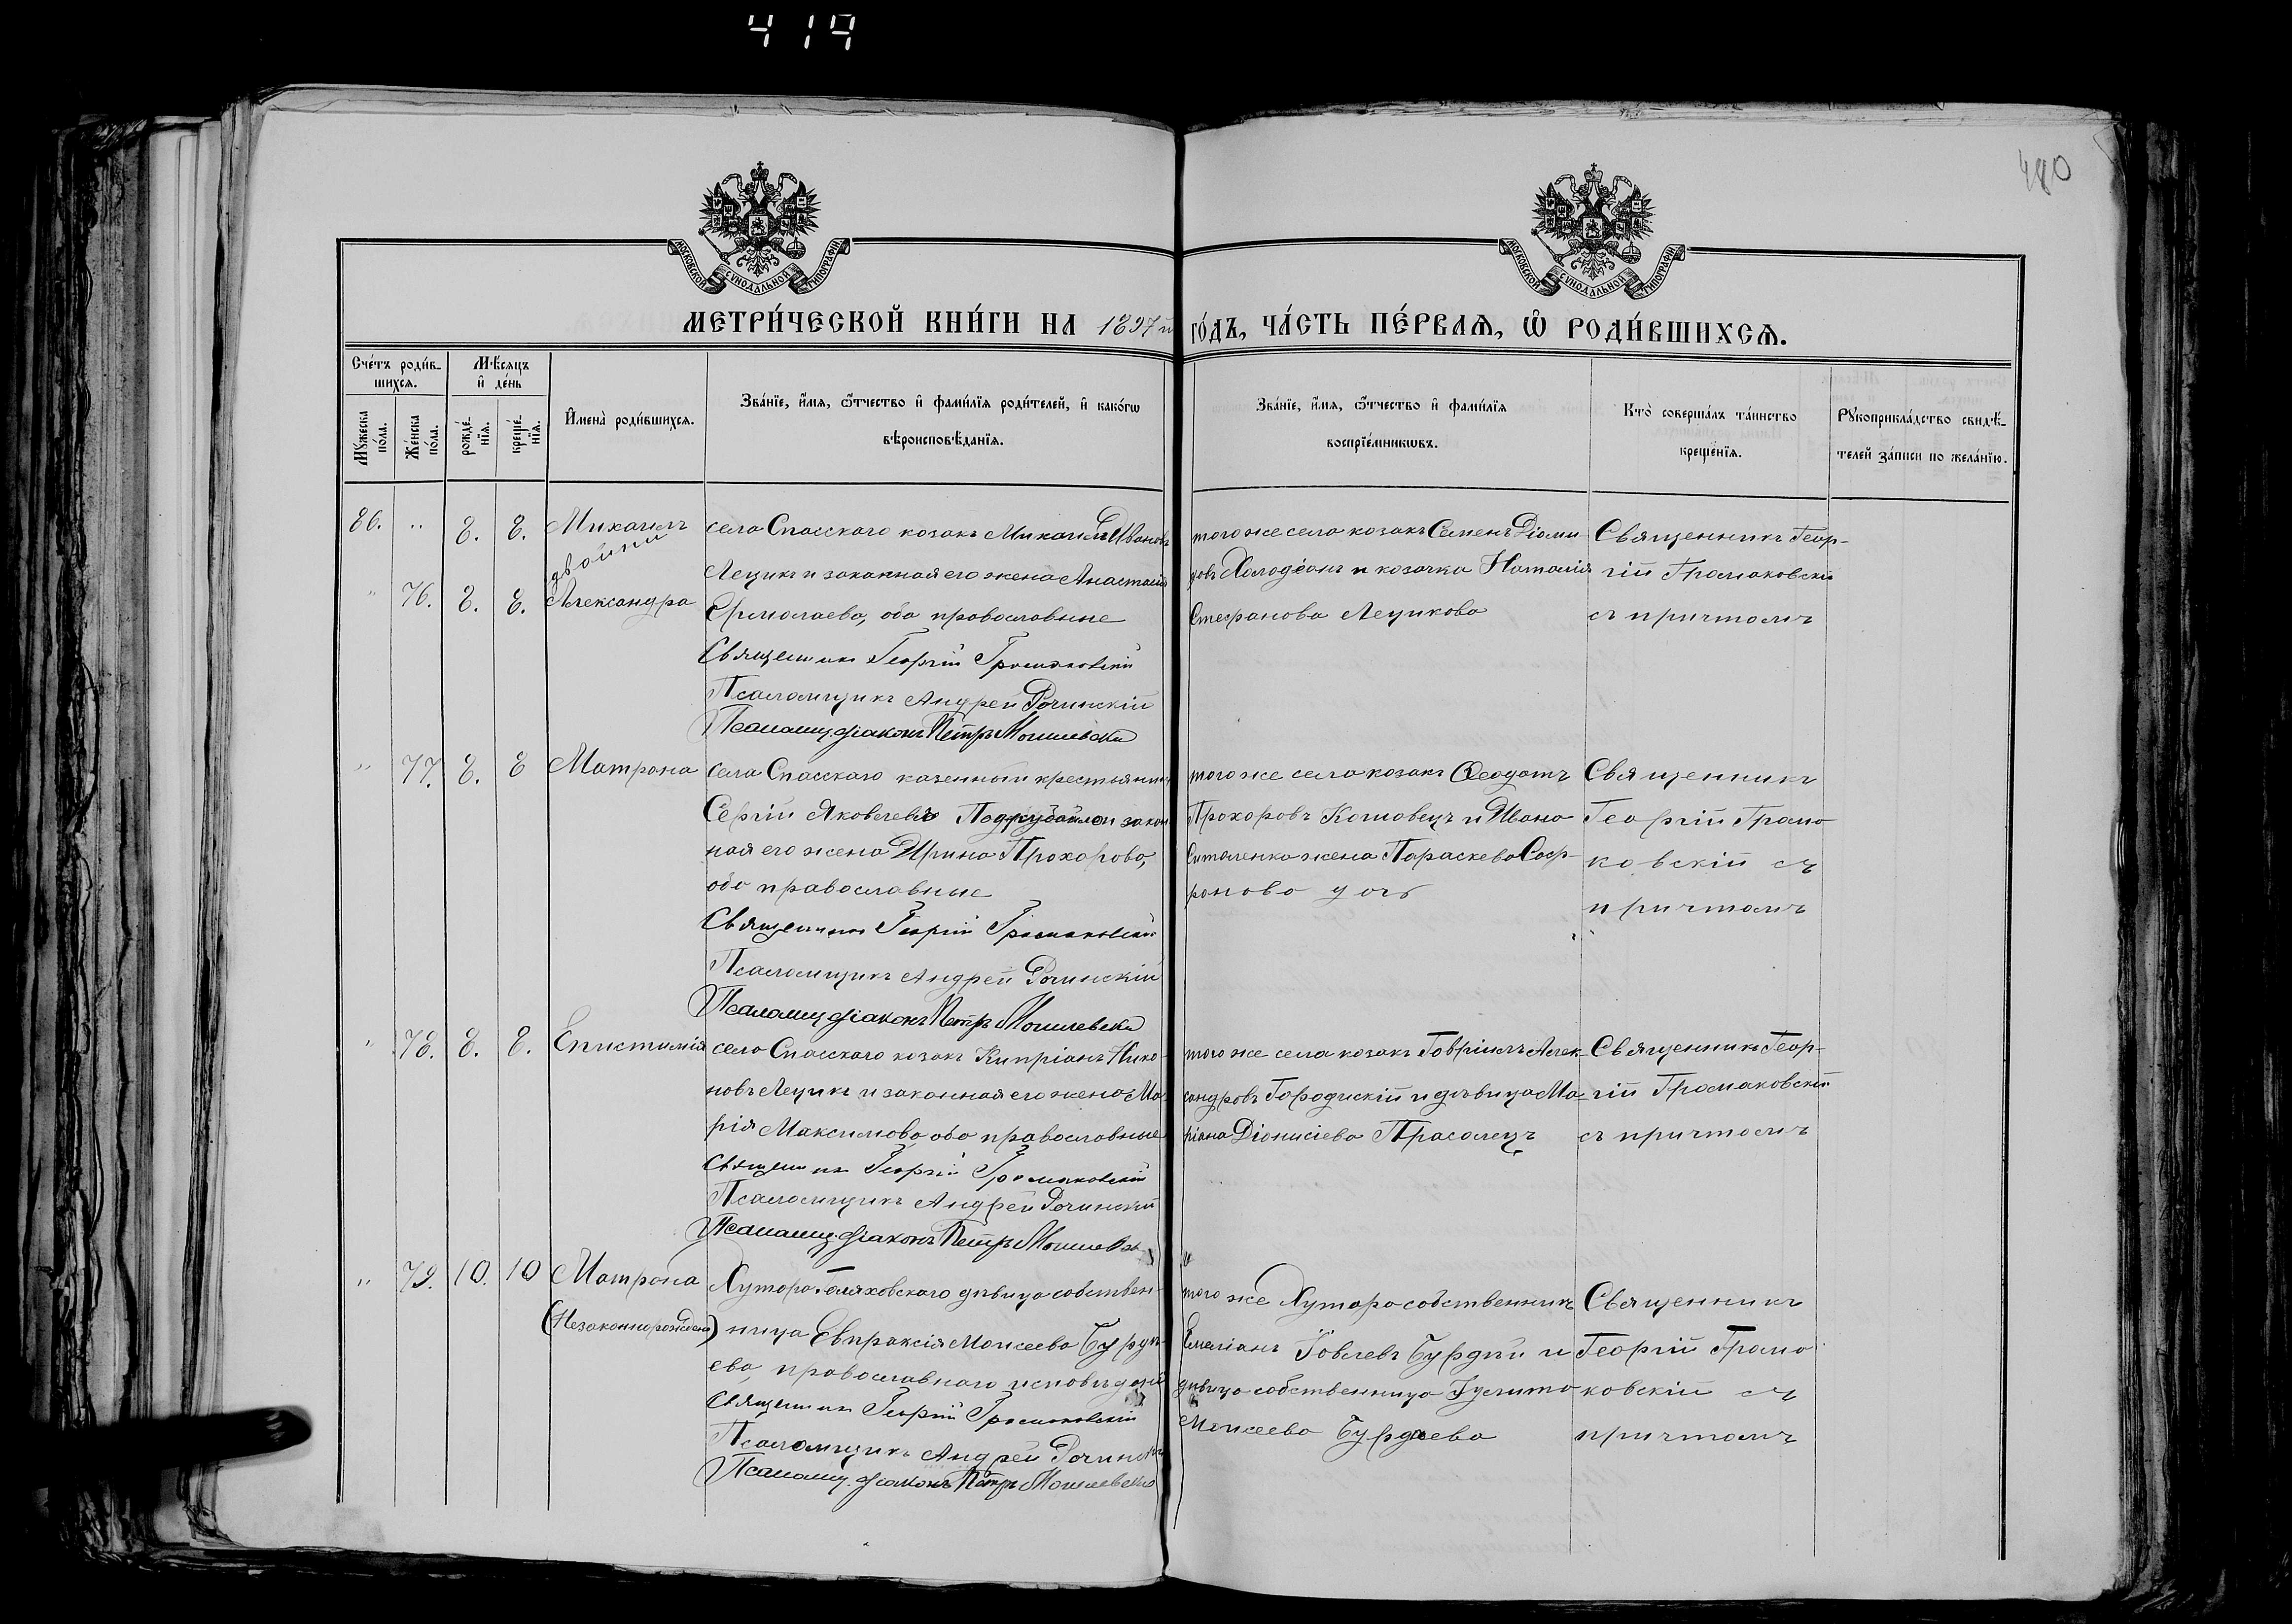 419
480
МОСКОВСКОЙ СУНОДАЛЬНОЙ ТИПОГРАФІИ
МОСКОВСКОЙ СУНОДАЛЬНОЙ ТИПОГРАФІИ
МЕТРИ́ЧЕСКОЙ КНИ́ГИ НА 1897 й ГО́ДЪ, ЧА́СТЬ ПЕ́РВАѦ, Ѡ РОДИ́ВШИХСѦ.
Сче́тъ роди́в-
шихся.
Мꙋжеска
по́ла.
Же́нска
по́ла.
Мѣ́сяцъ
и҆ де́нь
рожде́-
нїя.
креще́-
нїя.
И҆мена̀ роди́вшихся.
Зва́нїе, и҆́мя, ѻ҆́тчество и҆ фами́лїя роди́телей, и҆ како́гѡ
вѣроисповѣ́данїя.
Зва́нїе, и҆́мя, ѻ҆́тчество и҆ фами́лїя
воспрїе́мникѡвъ.
Кто̀ соверша́лъ та́инство
креще́нїя.
Рꙋкоприкла́дство свидѣ́-
телей за́писи по жела́нїю.
86. " 8. 8. Михаилъ
двойни
" 76. 8. 8. Александра
села Спасского козакъ Михаилъ Ивановъ
Лещикъ и законная его жена Анастасія
Ермолаева, оба православные
Священникъ Георгій Громаковскій
Псаломщикъ Андрей Рочинскій
Псаломщ. діаконъ Петръ Могилевскій
того же села козакъ Семенъ Діоми-
довъ и козачка Наталія
Стефанова Лещикова
Священникъ Геор-
гій Громаковскій
съ причтомъ
" 77. 8. 8 Матрона
села Спасского казенный крестьянинъ
Сергій Яковлевъ и закон
ная его жена Ирина Прохорова,
оба православные
Священникъ Георгій Громаковскій
Псаломщикъ Андрей Рочинскій
Псаломщ. діаконъ Петръ Могилевскій
того же села козакъ Ѳеодотъ
Прохоровъ и Ивана
жена Параскева Соф-
ронова дочь
Священникъ
Георгій Грома
ковскій съ
причтомъ
" 78. 8. 8. Епистимія
села Спасского козакъ Кипріанъ Нико-
новъ Лещикъ и законная его жена Ма-
рія Максимова, оба православные
Священникъ Георгій Громаковскій
Псаломщикъ Андрей Рочинскій
Псаломщ. діаконъ Петръ Могилевскій
того же села козакъ Гавріилъ Алек-
сандровъ Городискій и дѣвица Ма-
ріана Діонисіева Прасолець
Священникъ Геор-
гій Громаковскій
съ причтомъ
" 79. 10. 10 Матрона
(Незаконнорожден)
Хутора дѣвица собствен-
ница Евпраксія Моисеева
ева, православнаго исповѣданія
Священникъ Георгій Громаковскій
Псаломщикъ Андрей Рочинскій
Псаломщ. діаконъ Петръ Могилевскій
того же Хутора собственникъ
Емеліанъ и
дѣвица собственница
Моисеева Бурдаева
Священникъ
Георгій Грома
ковскій съ
причтомъ